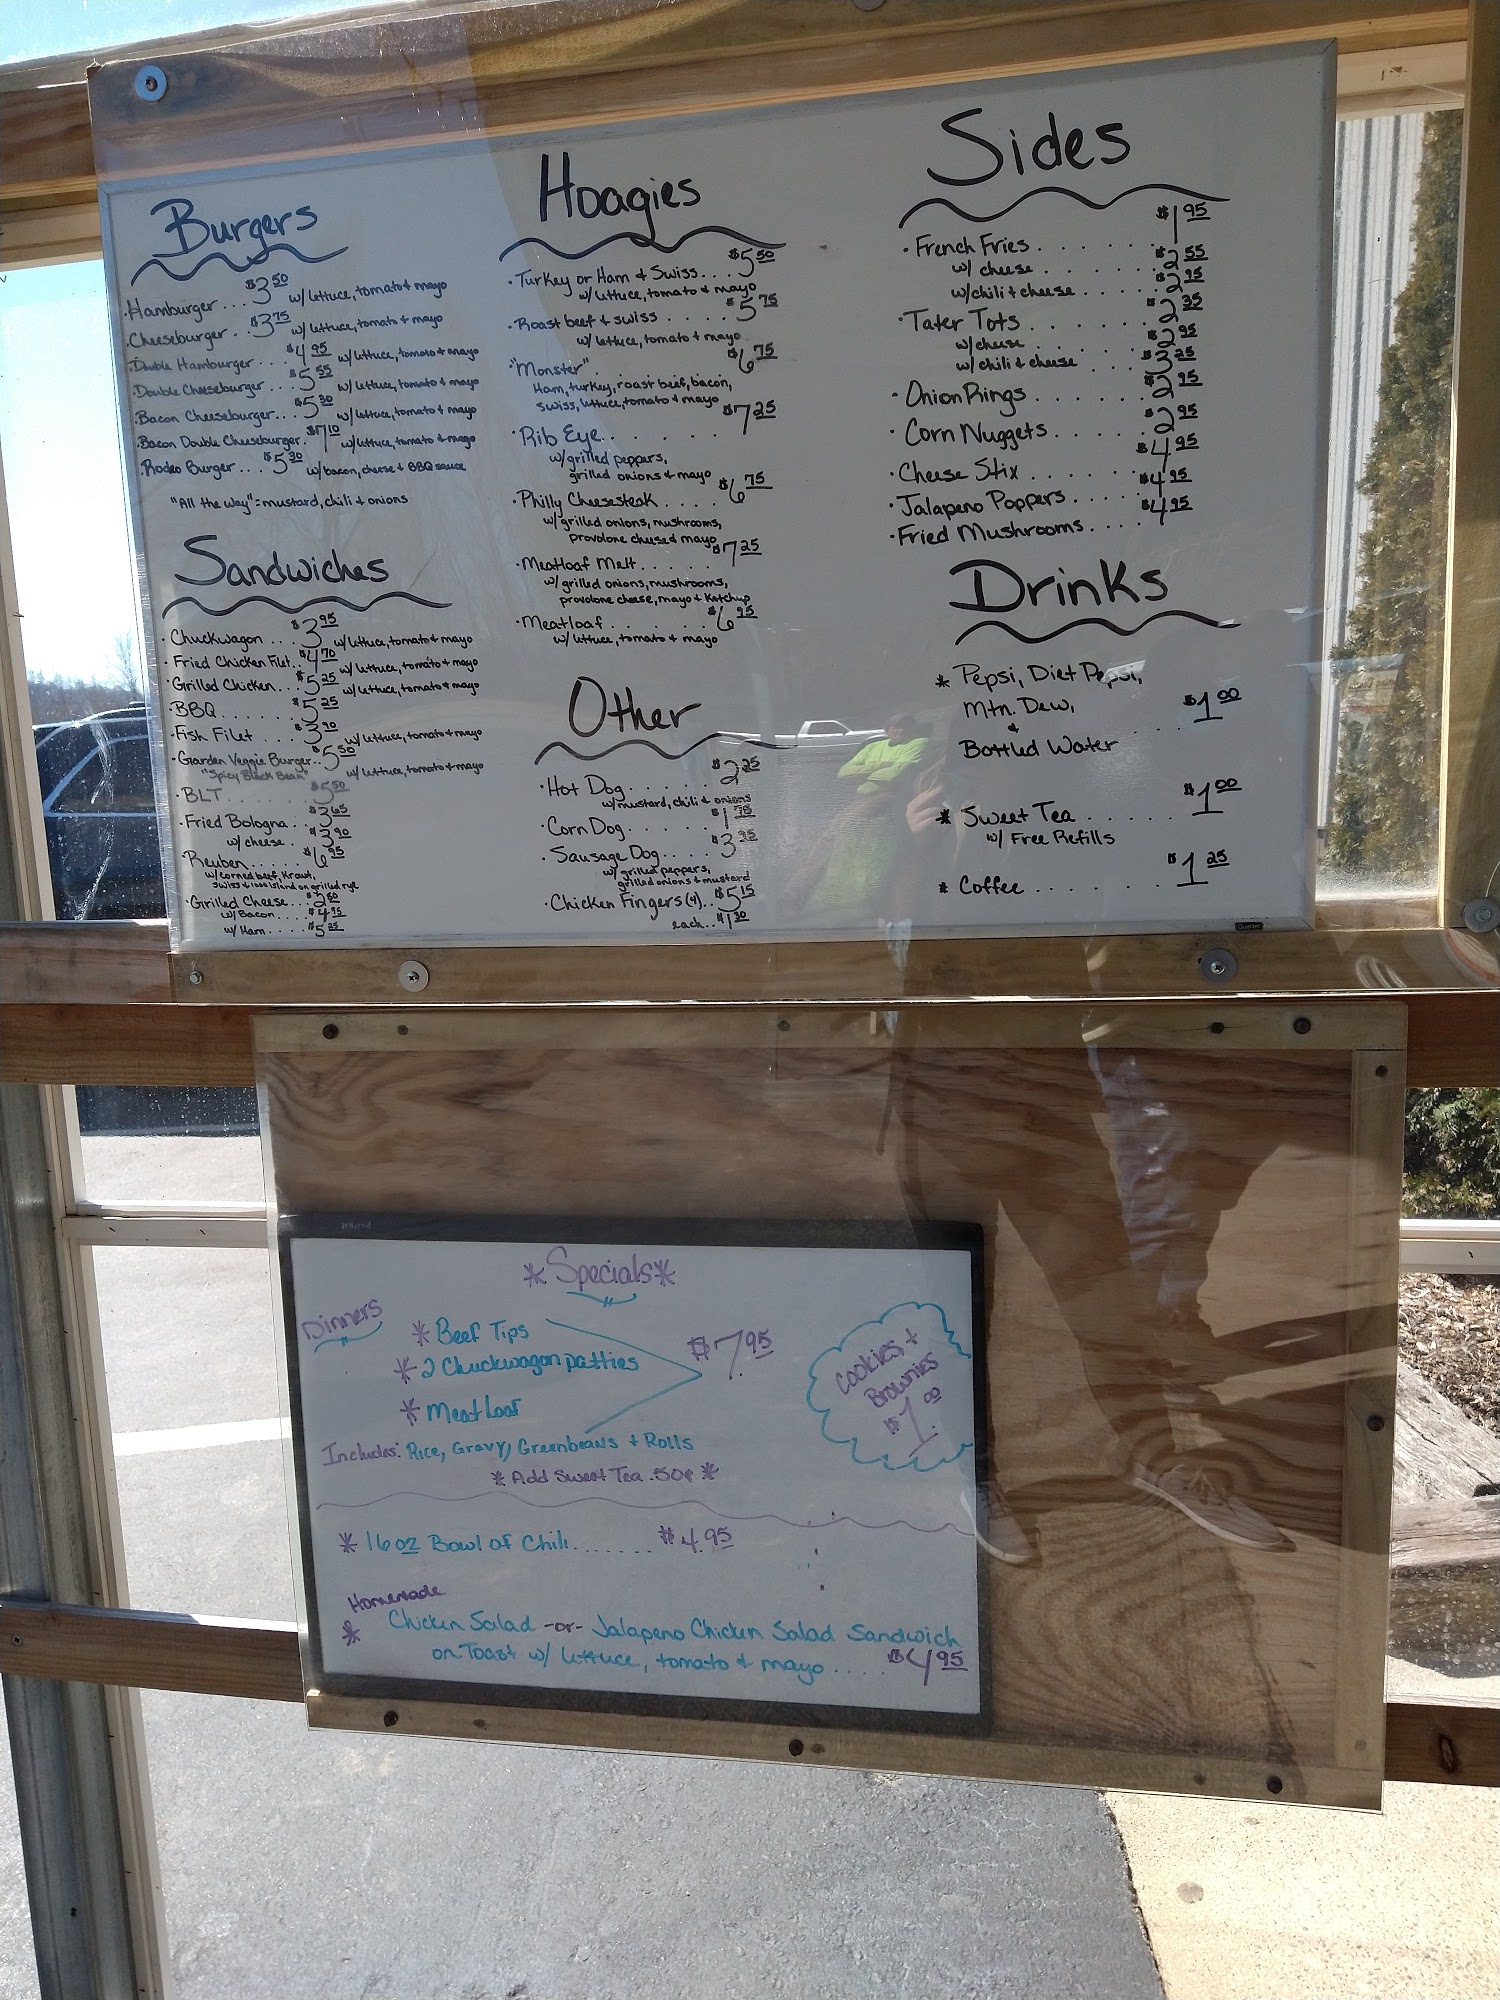 Burgers
·Hamburger... $3.50 w/ lettuce, tomato + mayo
·Cheeseburger $3.75 w/ lettuce, tomato + mayo
·Double Hamburger... $4.95 w/ lettuce, tomato + mayo
·Double Cheeseburger... $5.55 w/ lettuce, tomato + mayo
·Bacon Cheeseburger... $5.30 w/ lettuce, tomato + mayo
·Bacon Double Cheeseburger. $7.10 w/ lettuce, tomato + mayo
·Rodeo Burger... $5.30 w/ bacon, cheese + BBQ sauce
"All the way"= mustard, chili + onions
Sandwiches
·Chuckwagon... $3.95 w/ lettuce, tomato + mayo
·Fried Chicken Filet.. $4.70 w/ lettuce, tomato + mayo
·Grilled Chicken... $5.25 w/ lettuce, tomato + mayo
·BBQ...... $5.25
·Fish Filet.... $3.90 w/ lettuce, tomato + mayo
·Garden Veggie Burger.. $5.50 w/ lettuce, tomato + mayo
"Spicy Black Bean"
·BLT....... $5.50
·Fried Bologna... $3.65
w/ cheese.. $3.90
·Reuben...... $6.95
w/ corned beef, kraut,
swiss + 1000 island on grilled rye
·Grilled Cheese... $2.50
w/ Bacon.... $4.95
w/ Ham.... $5.25
Hoagies
·Turkey or Ham + Swiss... $5.50
w/ lettuce, tomato + mayo
·Roast beef + swiss..... $5.75
w/ lettuce, tomato + mayo
·"Monster"....... $6.75
Ham, turkey, roast beef, bacon,
swiss, lettuce, tomato + mayo
·Rib Eye....... $7.25
w/ grilled peppers,
grilled onions + mayo
·Philly Cheesesteak.... $6.75
w/ grilled onions, mushrooms,
provolone cheese + mayo
·Meatloaf Melt..... $7.25
w/ grilled onions, mushrooms,
provolone cheese, mayo + Ketchup
·Meatloaf....... $6.95
w/ lettuce, tomato + mayo
Other
·Hot Dog...... $2.25
w/ mustard, chili + onions
·Corn Dog...... $1.75
·Sausage Dog.... $3.95
w/ grilled peppers,
grilled onions + mustard
·Chicken Fingers (4).. $5.15
each.. $1.30
Sides
·French Fries...... $1.95
w/ cheese...... $2.55
w/ chili + cheese..... $2.95
·Tater Tots...... $2.35
w/ cheese...... $2.95
w/ chili + cheese.... $3.25
·Onion Rings...... $2.95
·Corn Nuggets..... $2.95
·Cheese Stix...... $4.95
·Jalapeno Poppers.... $4.95
·Fried Mushrooms.... $4.95
Drinks
* Pepsi, Diet Pepsi,
Mtn. Dew, ... $1.00
+
Bottled Water
* Sweet Tea...... $1.00
w/ Free Refills
* Coffee........ $1.25
Quartet
*Specials*
Dinners
*Beef Tips
*2 Chuckwagon patties $7.95
*Meat Loaf
Includes: Rice, Gravy, Greenbeans + Rolls
*Add Sweet Tea .50¢*
Cookies +
Brownies
$1.00
*16oz Bowl of Chili....... $4.95
Homemade
* Chicken Salad -or- Jalapeno Chicken Salad Sandwich
on Toast w/ lettuce, tomato + mayo..... $4.95